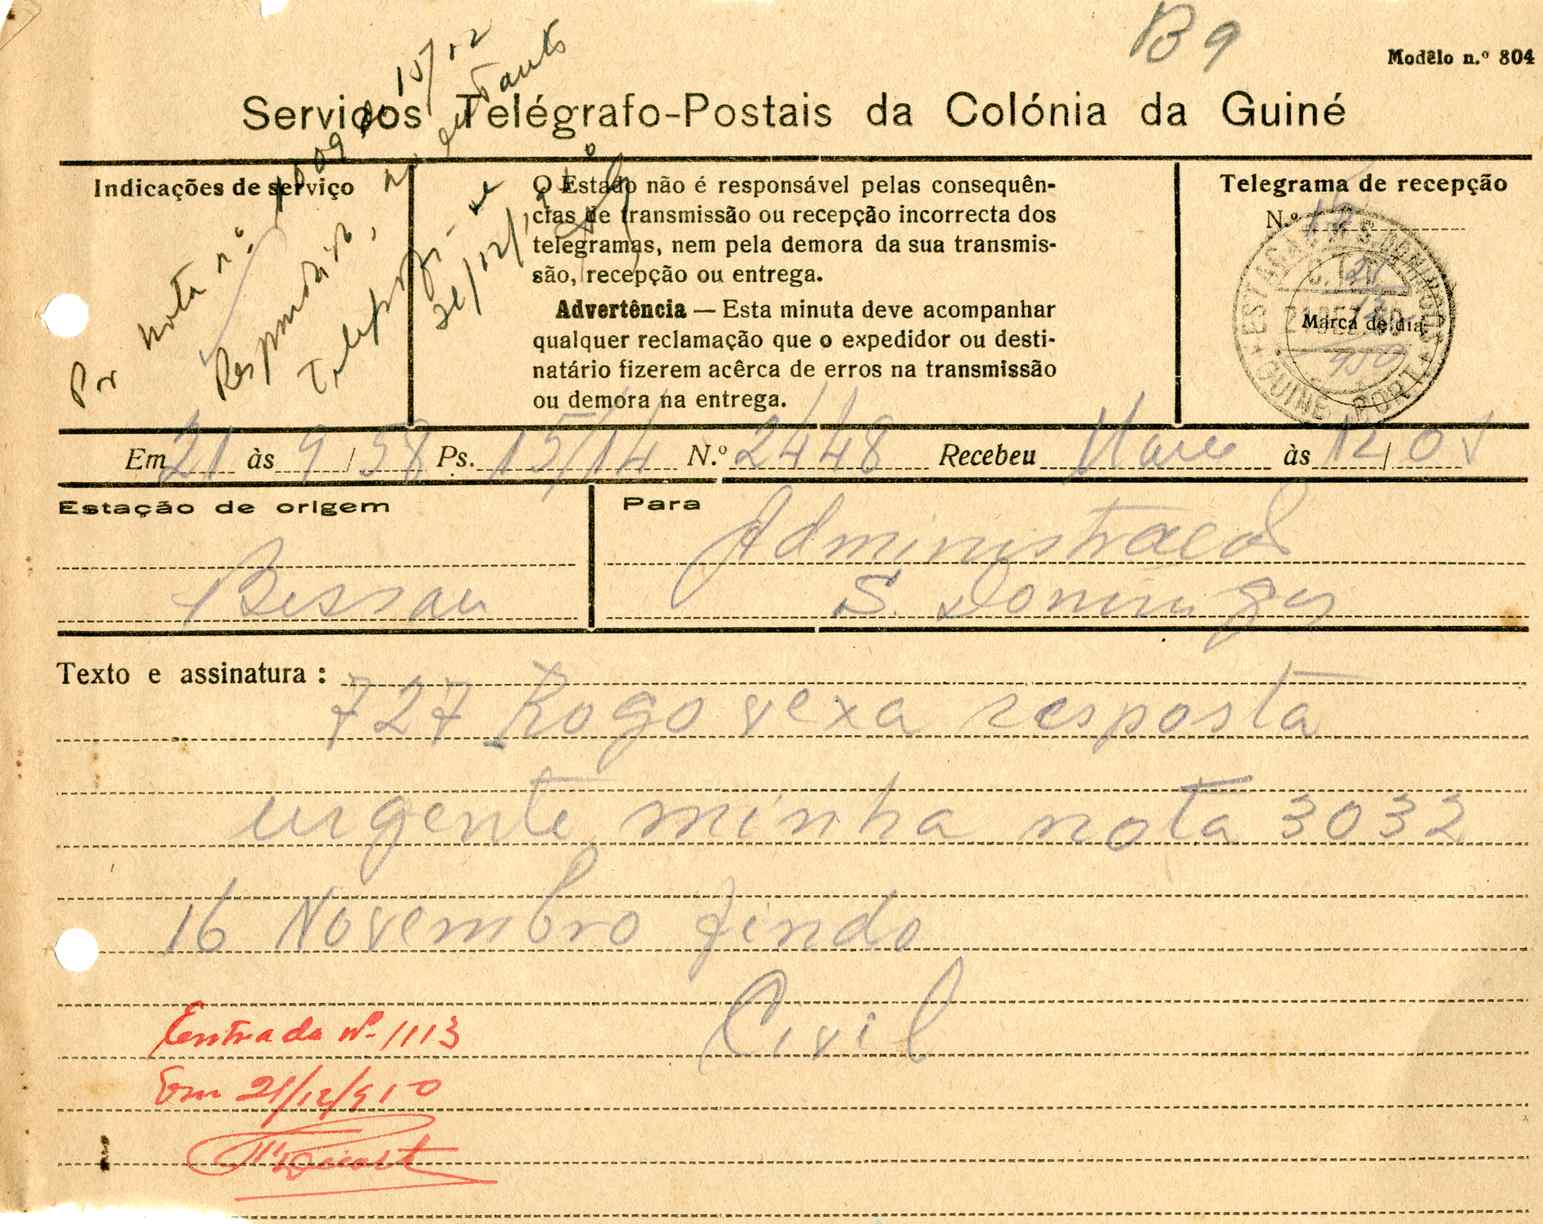 B 9
Modêlo n.º 804
Serviços Telégrafo-Postais da Colónia da Guiné
Indicações de serviço
Por nota n.º 1009 de 15/12
Respondido,
21/12/
O Estado não é responsável pelas consequên-
cias de transmissão ou recepção incorrecta dos
telegramas, nem pela demora da sua transmis-
são, recepção ou entrega.
Advertência — Esta minuta deve acompanhar
qualquer reclamação que o expedidor ou desti-
natário fizerem acêrca de erros na transmissão
ou demora na entrega.
Telegrama de recepção
N.º 15
ESTAÇÃO S. DOMINGOS
Marca de dia
GUINÉ PORT.
Em 21 às 9/58 Ps. 15/14 N.º 2448 Recebeu às 12/01
Estação de origem
Bissau
Para
Administracao
S. Domingos
Texto e assinatura:
727 Rogo vexa resposta
urgente minha nota 3032
16 Novembro findo
Civil
Entrada nº 1113
Em 21/12/950